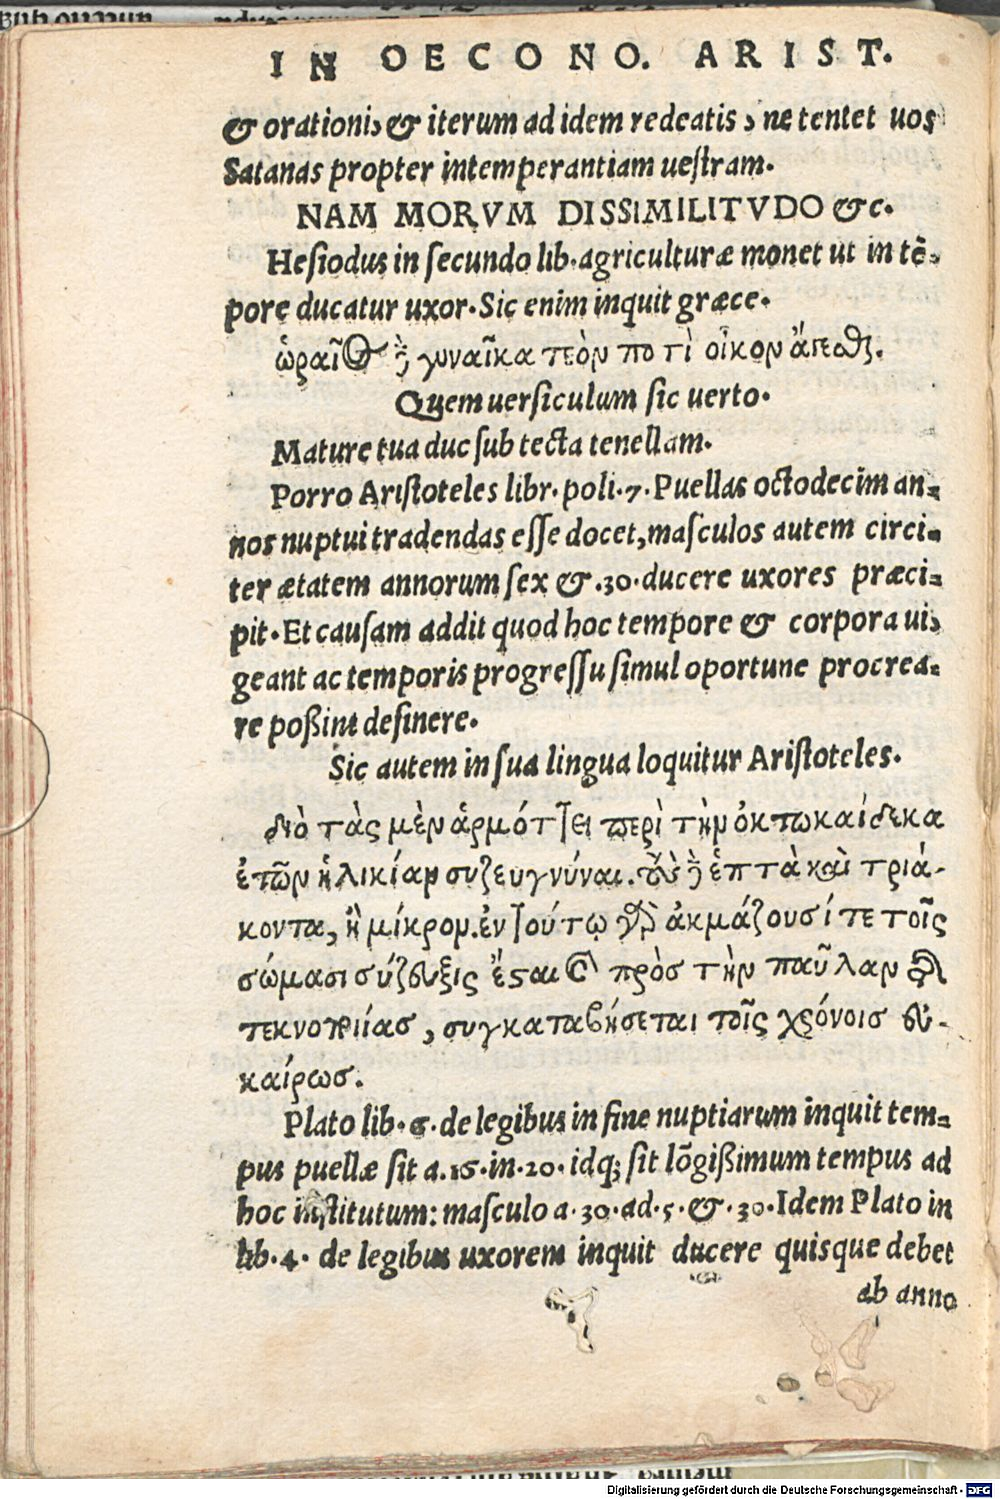 IN OECONO. ARIST.
& orationi, & iterum ad idem redeatis, ne tentet uos
Satanas propter intemperantiam uestram.
NAM MORVM DISSIMILITVDO &c.
Hesiodus in secundo lib. agriculturæ monet ut in tē-
pore ducatur uxor. Sic enim inquit græce.
ὡραῖος δὲ γυναῖκα τεὸν ποτὶ οἶκον ἄπεσθαι.
Quem uersiculum sic uerto.
Mature tua duc sub tecta tenellam.
Porro Aristoteles libr. poli. 7. Puellas octodecim an-
nos nuptui tradendas esse docet, masculos autem circi-
ter ætatem annorum sex &. 30. ducere uxores præci-
pit. Et causam addit quod hoc tempore & corpora ui,
geant ac temporis progressu simul oportune procrea-
re possint desinere.
Sic autem in sua lingua loquitur Aristoteles.
διὸ τὰς μὲν ἁρμότ]ει περὶ τὴν ὀκτωκαίδεκα
ἐτῶν ἡλικίαν συζευγνύναι. τοὺς δὲ ἑπτὰ καὶ τριά-
κοντα, ἢ μίκρον. ἐν]ούτῳ γὰρ ἀκμάζουσί τε τοῖς
σώμασι σύζευξις ἔσται καὶ πρὸσ τὴν παῦλαν τῆς
τεκνοποιίασ, συγκαταβήσεται τοῖς χρόνοισ εὐ-
καίρωσ.
Plato lib. 6. de legibus in fine nuptiarum inquit tem-
pus puellæ sit a. 16. in. 20. idq; sit lōgissimum tempus ad
hoc institutum: masculo a. 30. ad. 5. &. 30. Idem Plato in
lib. 4. de legibus uxorem inquit ducere quisque debet
ab anno
Digitalisierung gefördert durch die Deutsche Forschungsgemeinschaft - DFG